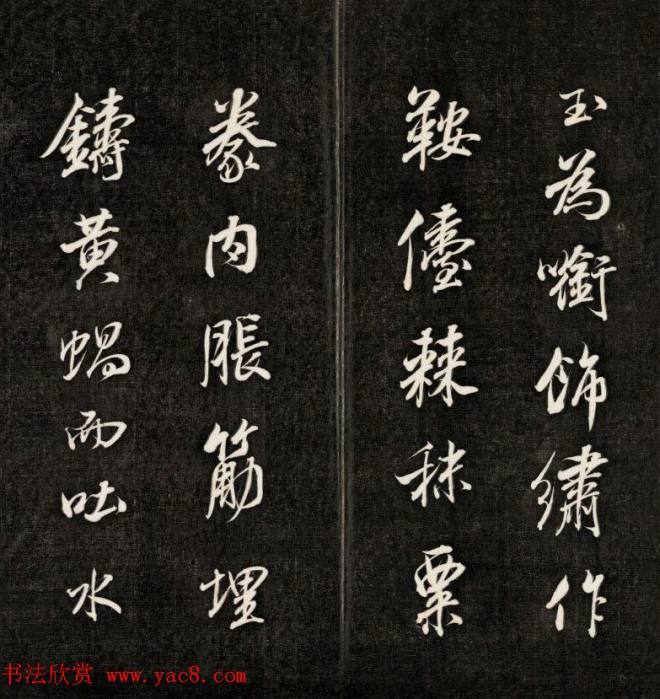 玉為嚙飾繡作
鞍儓棘秣粟
豢肉脹筋埋
鑄黃蝸而吐水
书法欣赏 www.yac8.com